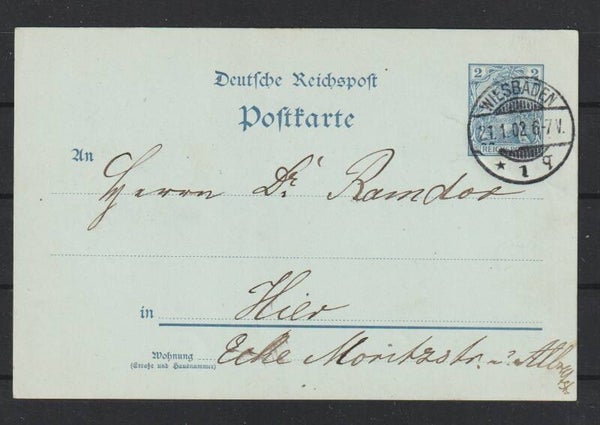 Deutsche Reichspost
Postkarte
2 2
WIESBADEN
21.1.02.6-7V.
* 1 q
REICHSPOST
An
Herrn Dr. Ramdor
in Hier
Wohnung Ecke Moritzstr. u.
(Straße und Hausnummer)